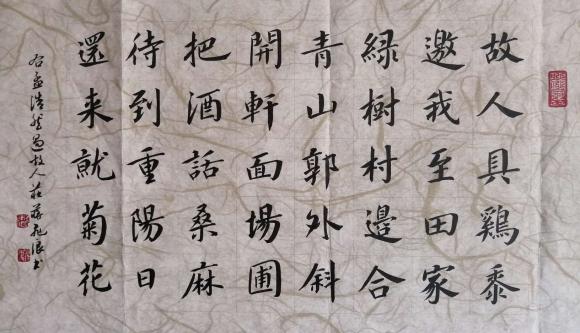 故人具鷄黍
邀我至田家
綠樹村邊合
青山郭外斜
開軒面場圃
把酒話桑麻
待到重陽日
還来就菊花
孟浩然過故人莊